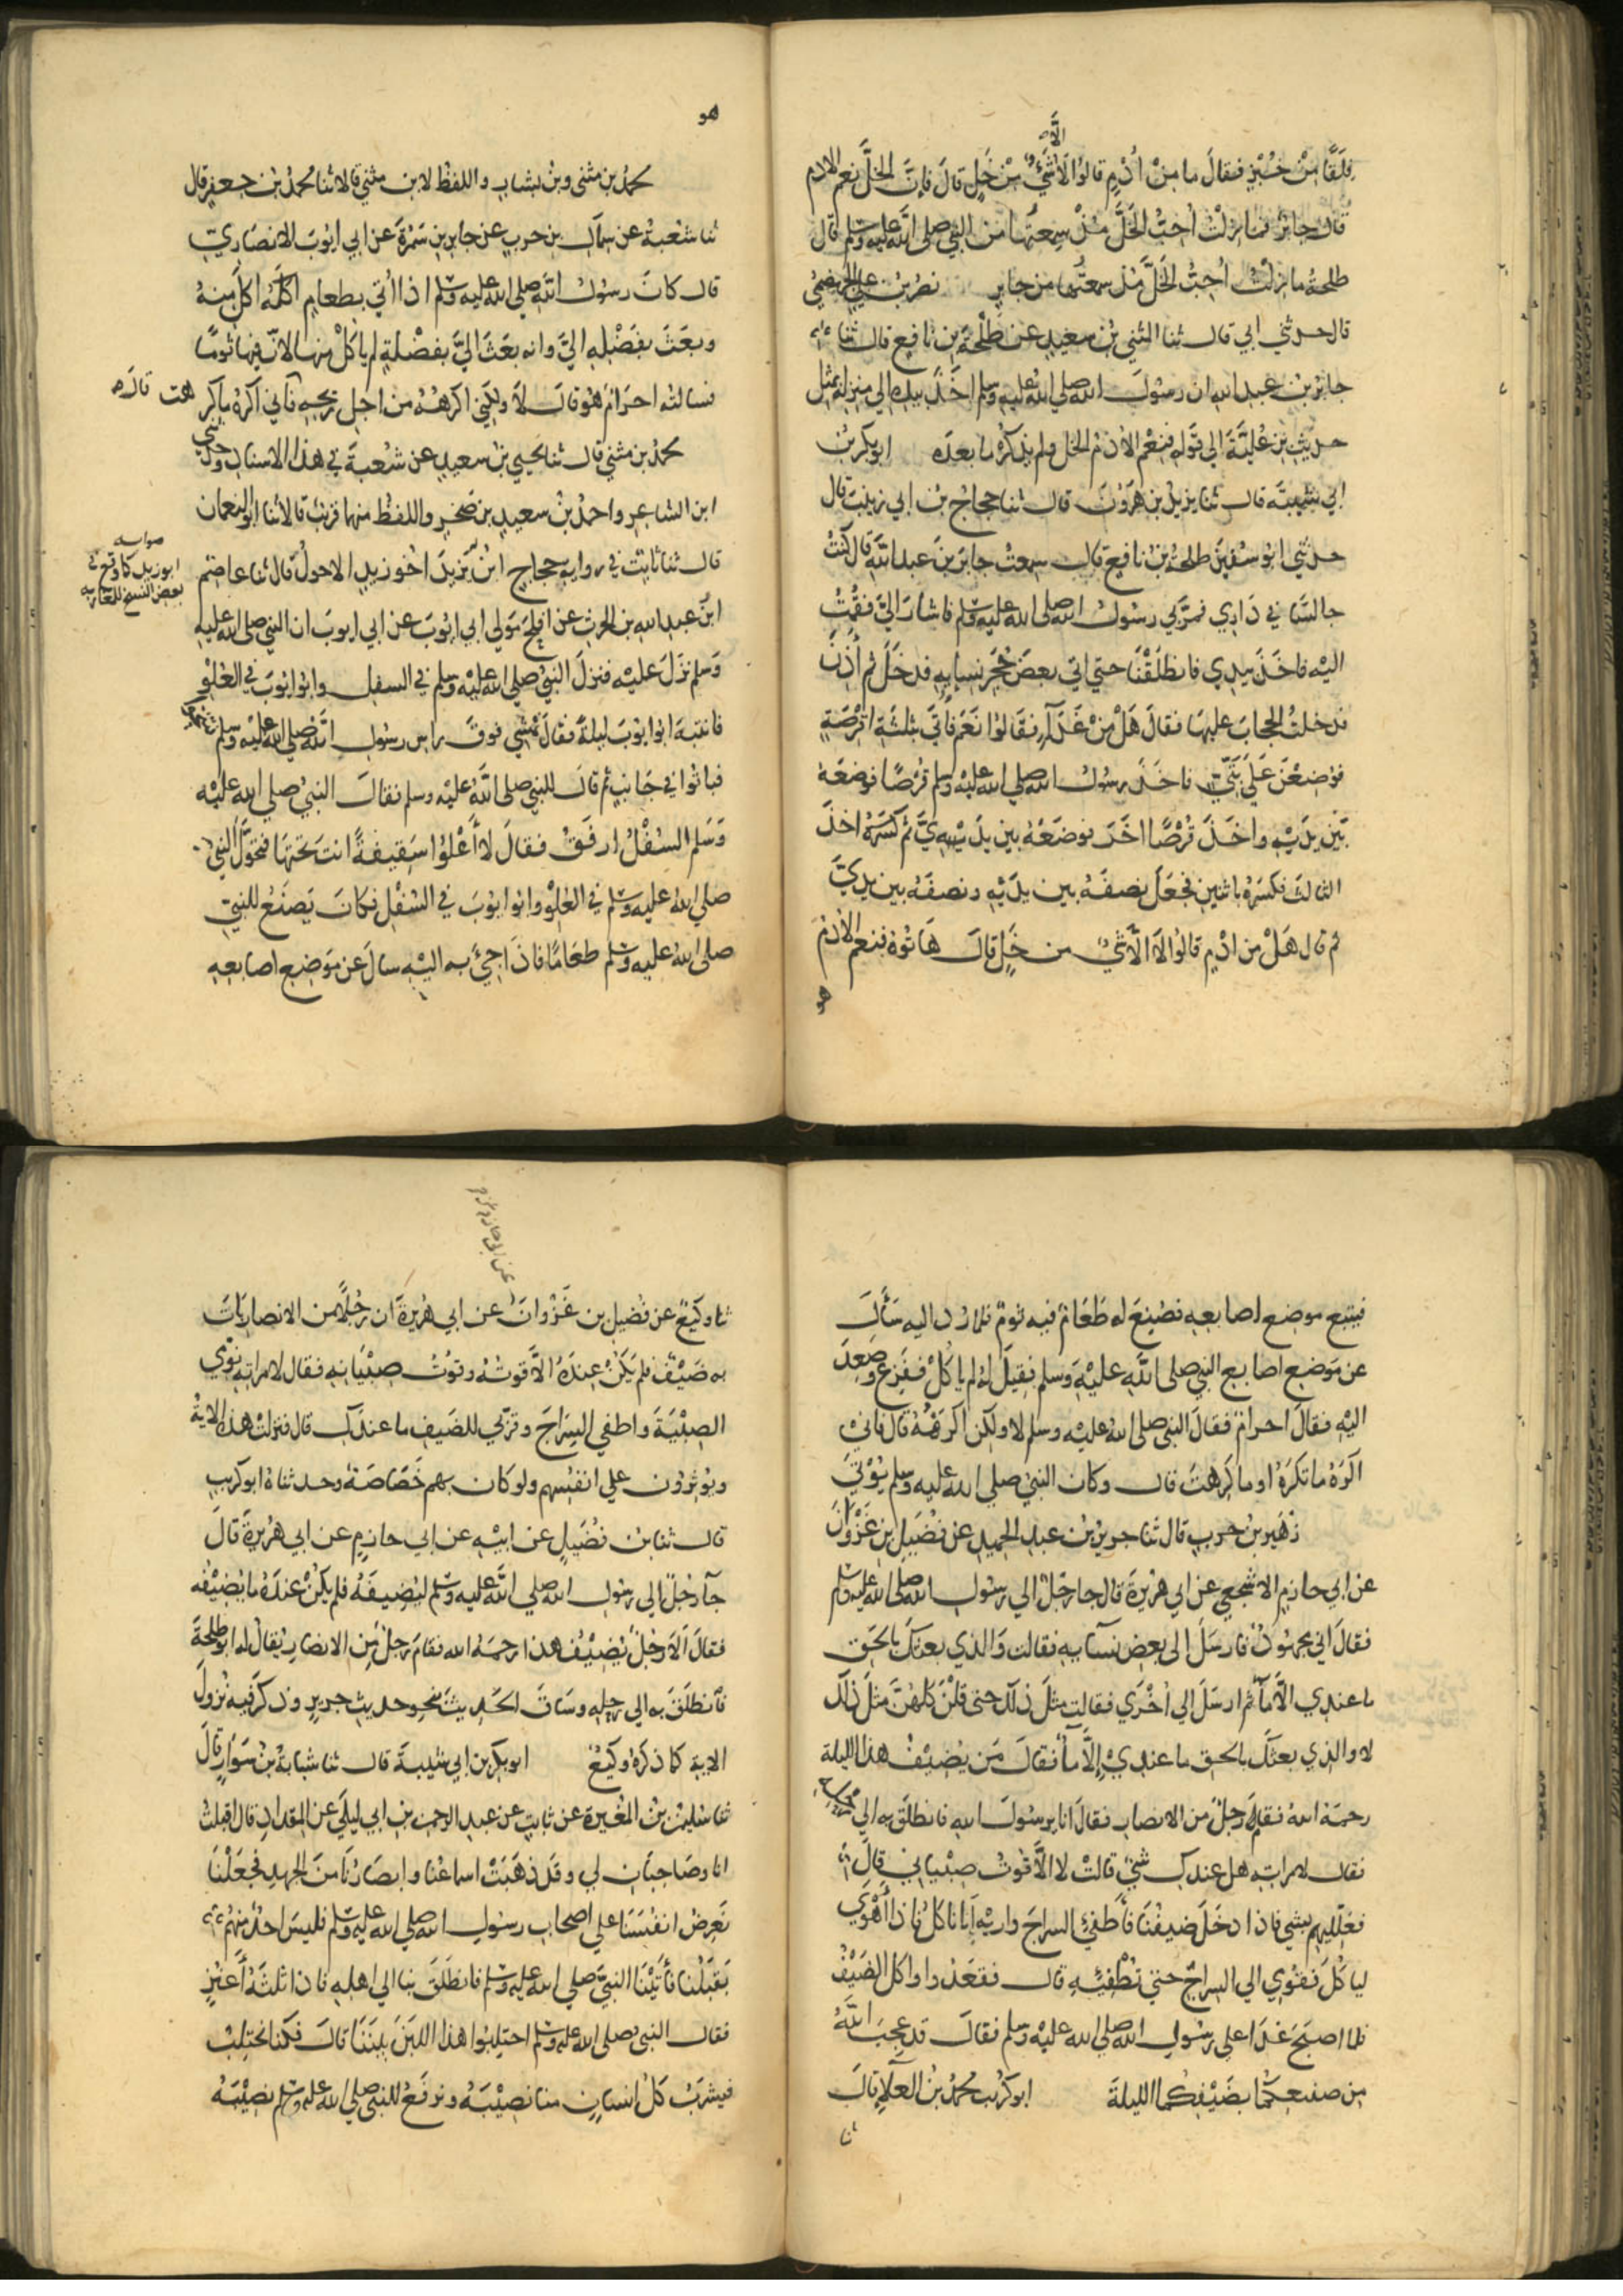 فلقا من خبز فقال ما من أدم قالوا لا الا شيء من خل قال فإن الخل نعم الادم
قال جابر فما زلت أحب الخل منذ سمعتها من النبي صلى الله عليه وسلم قال
طلحة ما زلت أحب الخل منذ سمعتها من جابر نصر بن علي الجهضمي
قال حدثني ابي قال ثنا المثنى بن سعيد عن طلحة بن نافع قال ثنا
جابر بن عبد الله ان رسول الله صلى الله عليه وسلم اخذ بيده الى منزله بمثل
حديث بن علية الى قوله فنعم الأدم الخل ولم يذكر ما بعده ابو بكر بن
ابي شيبة قال ثنا يزيد بن هرون قال ثنا حجاج بن ابي زينب قال
حدثني ابو سفين طلحة بن نافع قال سمعت جابر بن عبد الله قال كنت
جالسا في داري فمر بي رسول الله صلى الله عليه وسلم فاشار الي فقمت
اليه فاخذ بيدي فانطلقنا حتى اتى بعض حجر نسايه فدخل ثم أذن
فدخلت الحجاب عليها فقال هل من غدآء فقالوا نعم فاتي بثلثة اقرصة
فوضعن على بتي فاخذ رسول الله صلى الله عليه وسلم قرصا فوضعه
بين يديه واخذ قرصا اخر فوضعه بين يديي ثم كسره اخذ
الثالث فكسره باثنين فجعل نصفه بين يديه ونصفه بين يدي
ثم قال هل من ادم قالوا لا الا شيء من خل قال هاتوه فنعم الأدم
هو
هو
محمد بن مثنى وبن بشار واللفظ لابن مثنى قالا ثنا محمد بن جعفر قال
ثنا شعبة عن سماك بن حرب عن جابر بن سمرة عن ابي ايوب الانصاري
قال كان رسول الله صلى الله عليه وسلم اذا اتي بطعام اكله اكل منه
وبعث بفضله الي وانه بعث الي بفضلة لم ياكل منها لان فيها ثوما
فسالته احرام هو قال لا ولكني اكرهه من اجل ريحه فاني اكره ما كرهت قال
محمد بن مثنى قال ثنا يحيى بن سعيد عن شعبة في هذا الاسناد وحدثني
ابن الشاعر واحمد بن سعيد بن صخر واللفظ منهما قريب قالا ثنا ابو النعمان
قال ثنا ثابت في رواية حجاج ابن يزيد اخو زيد الاحول قال ثنا عاصم
صوابه
ابو زيد كما وقع في
بعض النسخ للمغاربه
ابن عبد الله بن الحرث عن افلح مولى ابي ايوب عن ابي ايوب ان النبي صلى الله عليه
وسلم نزل عليه فنزل النبي صلى الله عليه وسلم في السفل وابو ايوب في العلو
فانتبه ابو ايوب ليلة فقال نمشي فوق راس رسول الله صلى الله عليه وسلم
فباتوا في جانب ثم قال للنبي صلى الله عليه وسلم فقال النبي صلى الله عليه
وسلم السفل ارفق فقال لا أعلوا سقيفة انت تحتها فتحول النبي
صلى الله عليه وسلم في العلو وابو ايوب في السفل فكان يصنع للنبي
صلى الله عليه وسلم طعاما فاذا جيء به اليه سال عن موضع اصابعه
فيتبع موضع اصابعه فصنع له طعام فيه ثوم فلما رد اليه سأل
عن موضع اصابع النبي صلى الله عليه وسلم فقيل له لم ياكل ففزع وصعد
اليه فقال احرام فقال النبي صلى الله عليه وسلم لا ولكن اكرهه قال فاني
اكره ما تكره او ما كرهت قال وكان النبي صلى الله عليه وسلم يؤتى
زهير بن حرب قال ثنا جرير بن عبد الحميد عن فضيل بن غزوان
عن ابي حازم الاشجعي عن ابي هريرة قال جا رجل الى رسول الله صلى الله عليه وسلم
فقال اني مجهود فارسل إلى بعض نسآيه فقالت والذي بعثك بالحق
ما عندي الا مآ ثم ارسل الى أخرى فقالت مثل ذلك حتى قلن كلهن مثل ذلك
لا والذي بعثك بالحق ما عندي إلا مآ فقال من يضيف هذا الليلة
رحمه الله فقام رجل من الانصار فقال انا يرسول الله فانطلق به الى رحله
فقال لامراته هل عندك شيء قالت لا الا قوت صبياني قال
فعلليهم بشي فاذا دخل ضيفنا فأطفئ السراج واريه أنا ناكل فاذا أهوى
لياكل فقومي الى السراج حتى تطفئيه قال فقعدوا واكل الضيف
فلما اصبح غدا على رسول الله صلى الله عليه وسلم فقال قد عجب الله
من صنيعكما بضيفكما الليلة ابو كريب محمد بن العلاء قال
ثنا
عن ابي حازم
ثنا وكيع عن فضيل بن غزوان عن ابي هريرة ان رجلا من الانصار بات
به ضيف فلم يكن عنده الا قوته وقوت صبيانه فقال لامراته نومي
الصبية واطفي السراج وقربي للضيف ما عندك قال فنزلت هذه الاية
ويؤثرون على انفسهم ولو كان بهم خصاصة وحدثناه ابو كريب
قال ثنا بن فضيل عن ابيه عن ابي حازم عن ابي هريرة قال
جآ رجل الى رسول الله صلى الله عليه وسلم ليضيفه فلم يكن عنده ما يضيفه
فقال ألا رجل يضيف هذا رحمه الله فقام رجل من الانصار يقال له ابو طلحة
فانطلق به الى رحله وساق الحديث بنحو حديث جرير وذكر فيه نزول
الاية كما ذكره وكيع ابو بكر بن ابي شيبة قال ثنا شبابة بن سوار قال
ثنا سليمن بن المغيرة عن ثابت عن عبد الرحمن بن ابي ليلى عن المقداد قال اقبلت
انا وصاحبان لي وقد ذهبت اسماعنا وابصارنا من الجهد فجعلنا
نعرض انفسنا على اصحاب رسول الله صلى الله عليه وسلم فليس احد منهم
يقبلنا فأتينا النبي صلى الله عليه وسلم فانطلق بنا الى اهله فاذا ثلثة أعنز
فقال النبي صلى الله عليه وسلم احتلبوا هذا اللبن بيننا قال فكنا نحتلب
فيشرب كل انسان منا نصيبه ونرفع للنبي صلى الله عليه وسلم نصيبه